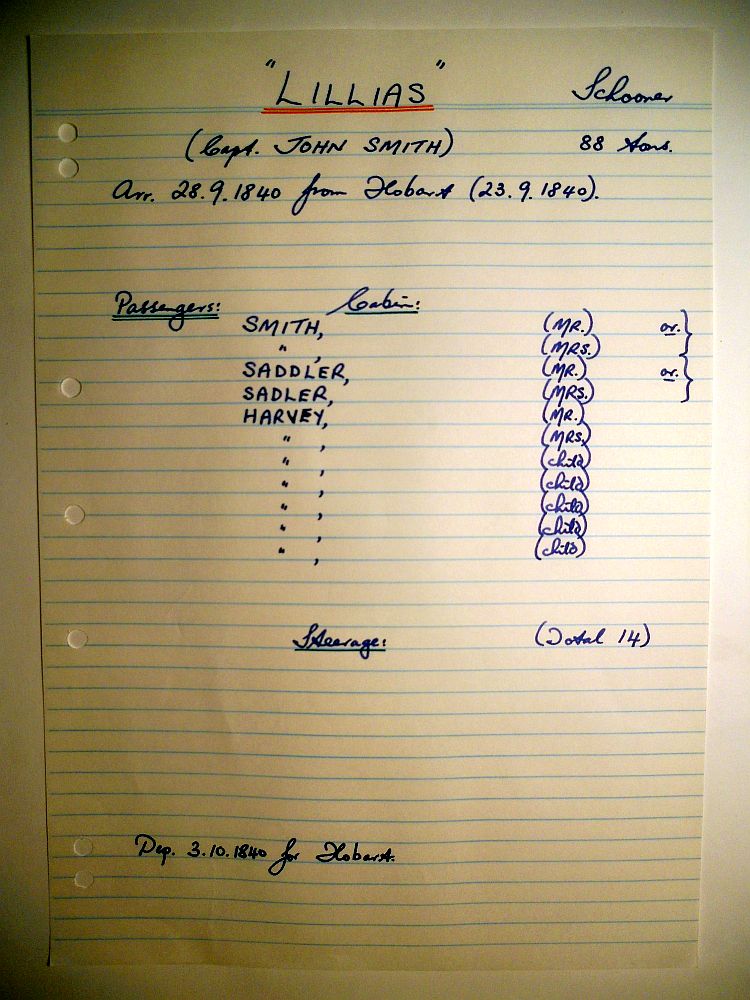 "LILLIAS" Schooner
(Capt. JOHN SMITH) 88 tons.
Arr. 28.9.1840 from Hobart (23.9.1840).
Passengers: Cabin:
SMITH, (MR.) or.}
" , (MRS.)
SADDLER, (MR.) or.}
SADLER, (MRS.)
HARVEY, (MR.)
" , (MRS.)
" , (child)
" , (child)
" , (child)
" , (child)
" , (child)
Steerage: (Total 14)
Dep. 3.10.1840 for Hobart.